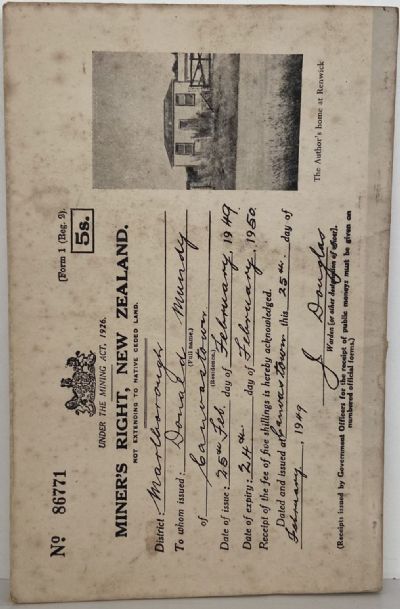 Nº 86771
(Form 1 (Reg. 9).
5s.
UNDER THE MINING ACT, 1926.
MINER'S RIGHT, NEW ZEALAND.
NOT EXTENDING TO NATIVE CEDED LAND.
District Marlborough
To whom issued: Donald Mundy
(Full name.)
of Canvastown
(Residence.)
Date of issue: 25th Feb. day of February, 1949.
Date of expiry: 24th. day of February, 1950.
Receipt of the fee of five shillings is hereby acknowledged.
Dated and issued at Canvastown this 25th. day of
February, 1949
J Douglas
Warden [or other designation of officer].
(Receipts issued by Government Officers for the receipt of public moneys must be given on
numbered official forms.)
The Author's home at Renwick